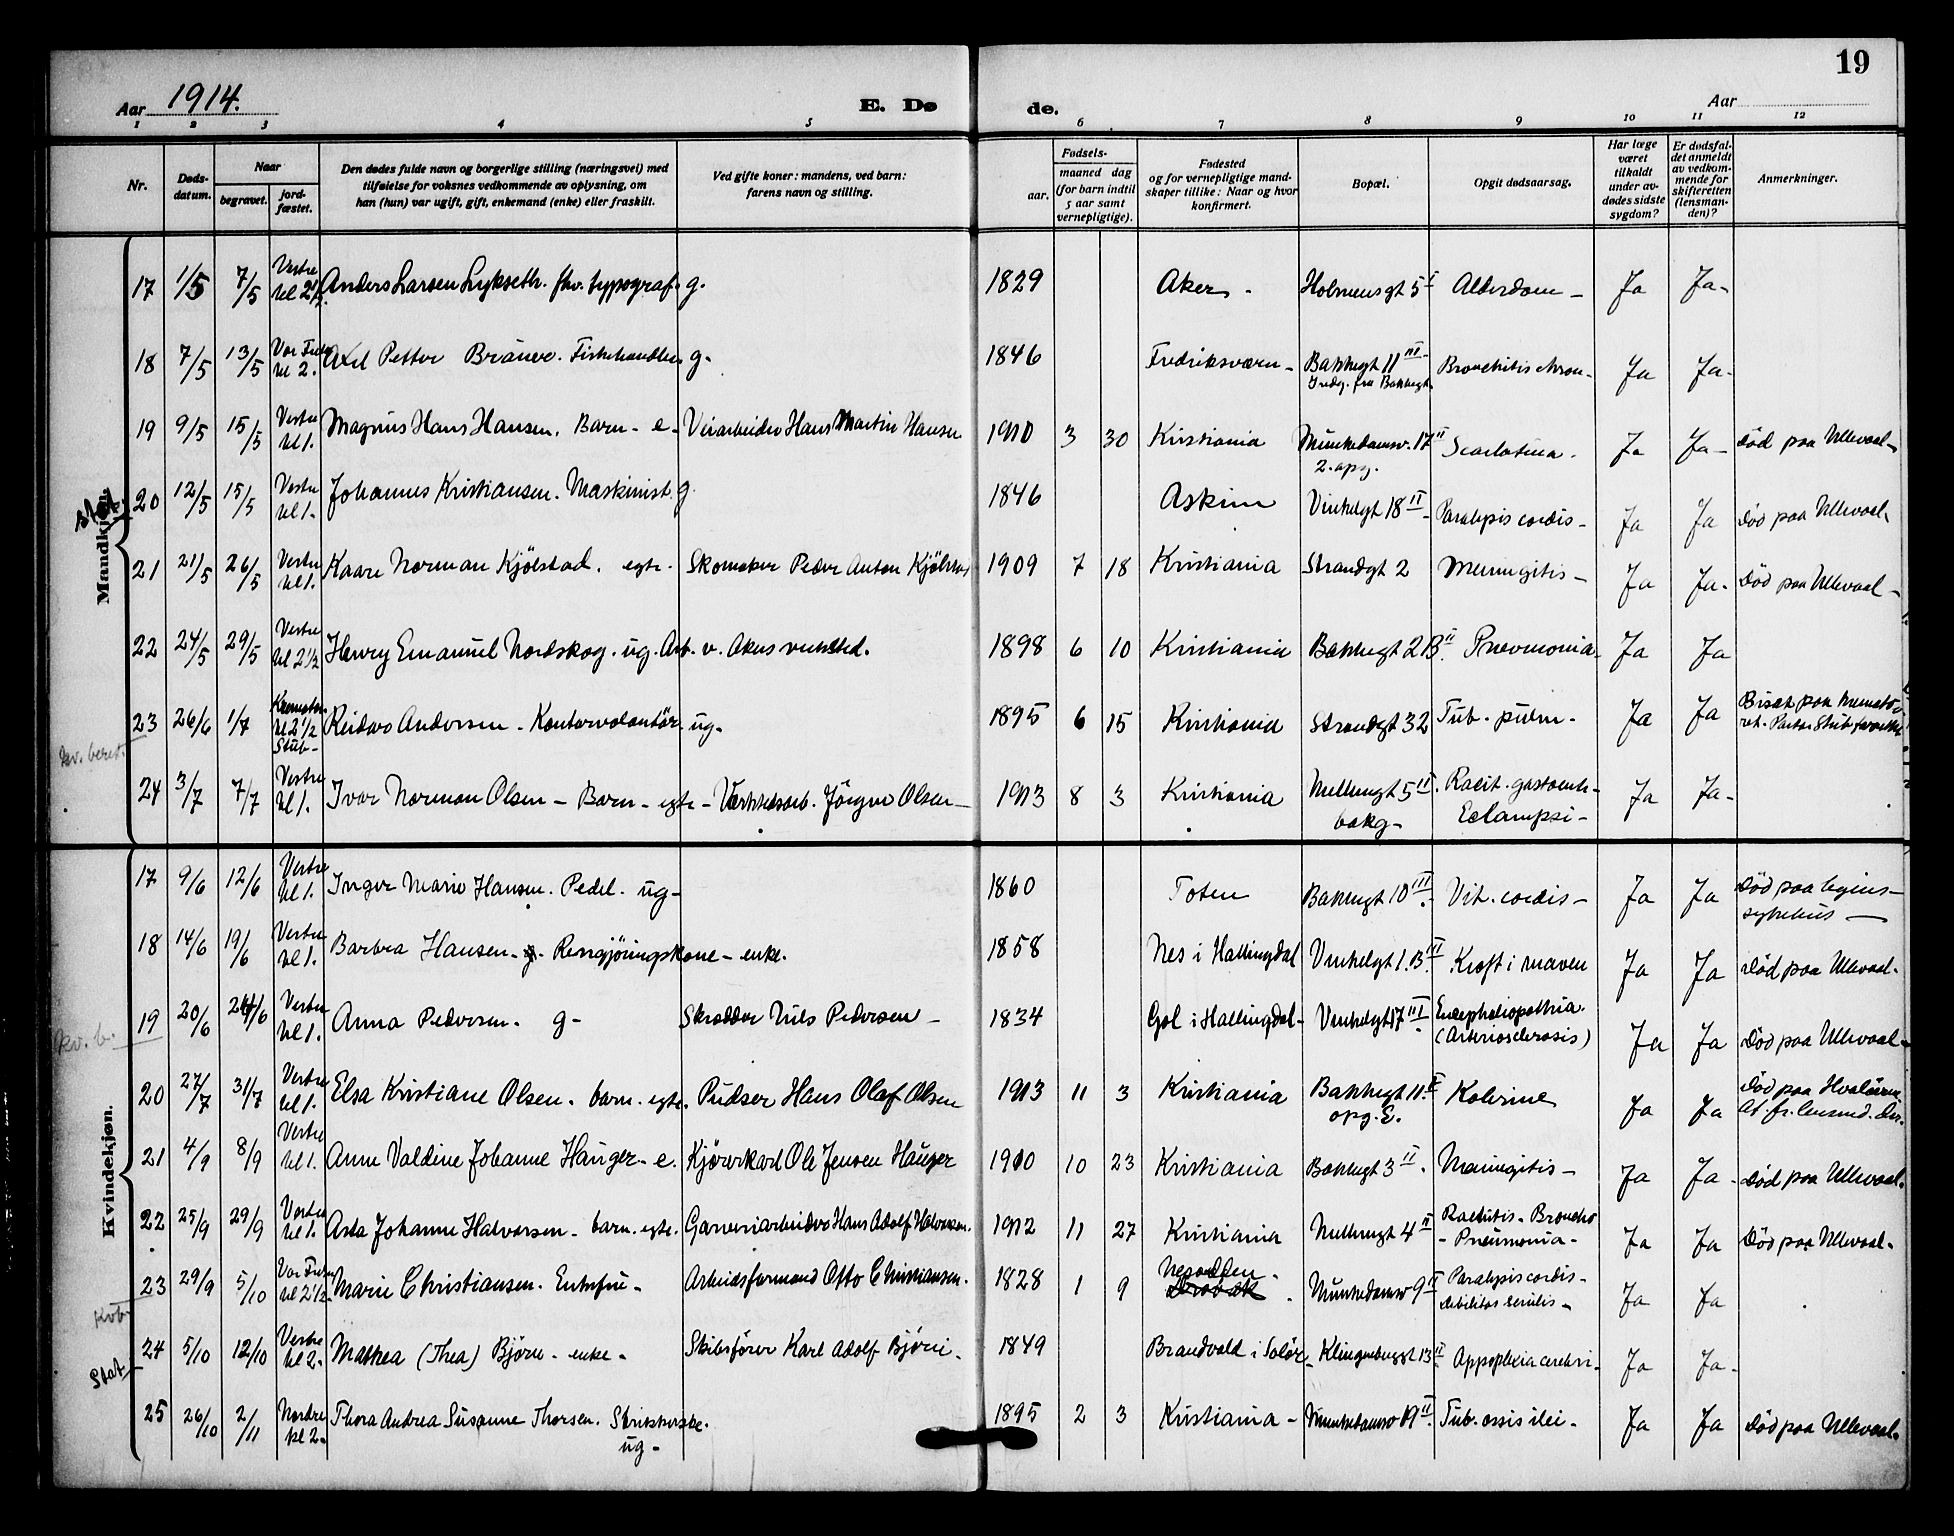 19
Aar 1914.
E. Dø
de.
Aar
1 2 3 4 5 6 7 8 9 10 11 12
Nr.
Døds-
datum.
Naar
begravet.
jord-
fæstet.
Den dødes fulde navn og borgerlige stilling (næringsvei) med
tilføielse for voksnes vedkommende av oplysning, om
han (hun) var ugift, gift, enkemand (enke) eller fraskilt.
Ved gifte koner: mandens, ved barn:
farens navn og stilling.
Fødsels-
aar.
maaned dag
(for barn indtil
5 aar samt
vernepligtige).
Fødested
og for vernepligtige mand-
skaper tillike: Naar og hvor
konfirmert.
Bopæl.
Opgit dødsaarsag.
Har læge
været
tilkaldt
under av-
dødes sidste
sygdom?
Er dødsfal-
det anmeldt
av vedkom-
mende for
skifteretten
(lensman-
den)?
Anmerkninger.
Mandkjøn.
17 1/5 7/5 Vestre kl 2½ Anders Larsen Lykseth. fhv. typograf. g. 1829 Aker. Holmensgt 5 I Alderdom - Ja Ja-
18 7/5 13/5 Vor Frels kl 2. Axel Petter Bräuer. Fiskehandler g. 1846 Fredriksværn - Bakkegt 11 III Bronchitis chron- Ja Ja-
Indg. fra Bakkegt.
19 9/5 15/5 Vestre kl 1. Magnus Hans Hansen. Barn - e - Veiarbeider Hans Martin Hansen 1910 3 30 Kristiania Munkedamsv. 17 II Scarlatina. Ja Ja- Død paa Ullevaal-
2. opg.
20 12/5 15/5 Vestre kl 1. Johannes Kristiansen. Maskinist. g 1846 Askim Vinkelgt 18 II- Paralysis cordis- Ja Ja Død paa Ullevaal.
21 21/5 26/5 Vestre kl 1. Kaare Norman Kjölstad. egte. Skomaker Peder Anton Kjölstad 1909 7 18 Kristiania Strandgt 2 Meningitis- Ja Ja- Død paa Ullevaal-
22 24/5 29/5 Vestre kl 2½ Henry Emanuel Nordskog. ug. Arb. v. Akers verksted. 1898 6 10 Kristiania Bakkegt 2B II. Pneumonia- Ja Ja
23 26/6 1/7 Kremator. kl 2½ Stub- Reidar Andersen - Kontorvolontör ug. 1895 6 15 Kristiania Strandgt 32 Tub. pulm. Ja Ja Bisat paa kremato-
ret. Pastor Stub forrettet
24 3/7 7/7 Vestre kl 1. Ivar Norman Olsen - Barn - egte - Værkstedsarb. Jörgen Olsen - 1913 8 3 Kristiania Mellemgt 5 II. Racit. gastroent- Ja Ja-
bakg- Eclampsi-
Kvindekjøn.
17 9/6 12/6 Vestre kl 1. Inger Marie Hansen. Pedel. ug- 1860 Toten Bakkegt 10 III. Vit. cordis- Ja Ja Død paa
sykehus
18 14/6 19/6 Vestre kl 1. Barbra Hansen- g. Rengjöringskone - enke. 1858 Nes i Hallingdal Vinkelgt 1.B III Kræft i maven Ja Ja Død paa Ullevaal.
19 20/6 24/6 Vestre kl 1. Anna Pedersen. g- Skrædder Nils Pedersen- 1834 Gol i Hallingdal- Vinkelgt 17 III Encephaliopathia.
(Arteriosclerosis) Ja Ja Død paa Ullevaal-
20 27/7 31/7 Vestre kl 1. Elsa Kristiane Olsen. barn. egte. Pudser Hans Olaf Olsen 1913 11 3 Kristiania Bakkegt 11 II Kolerine Ja Ja Død paa Hvalöerne
opg. E. At. fr. lensmd. der.
21 4/9 8/9 Vestre kl 1. Anne Valdine Johanne Hauger- e. Kjörerkarl Ole Jensen Hauger 1910 10 23 Kristiania Bakkegt 3 II. Meningitis- Ja Ja- Død paa Ullevaal.
22 25/9 29/9 Vestre kl 1. Asta Johanne Halvorsen - barn. egte. Garveriarbeider Hans Adolf Halvorsen. 1912 11 27 Kristiania Mellemgt 4 II Rachitis- Broncho
- Pneumonia- Ja Ja Død paa Ullevaal.
23 29/9 5/10 Vor Frelser kl 2½- Marie Christiansen. Enkefru- Arbeidsformand Otto Christiansen. 1828 1 9 Nesodden. Munkedamsv 9 II Paralysis cordis-
Drøbak Debilitas senilis- Ja Ja
24 5/10 12/10 Vestre kl 2. Mathea (Thea) Björn - enke. Skibsförer Karl Adolf Björn. 1849 Brandvold i Solör- Klingenberggt 13 II Appoplexia cerebri- Ja Ja-
Stat
25 26/10 2/11 Nordre kl 2. Thora Andrea Susanne Thorsen. 1895 2 3 Kristiania - Munkedamsv 19 II. Tub. ossis ilei- Ja Ja Død paa Ullevaal.
ug-